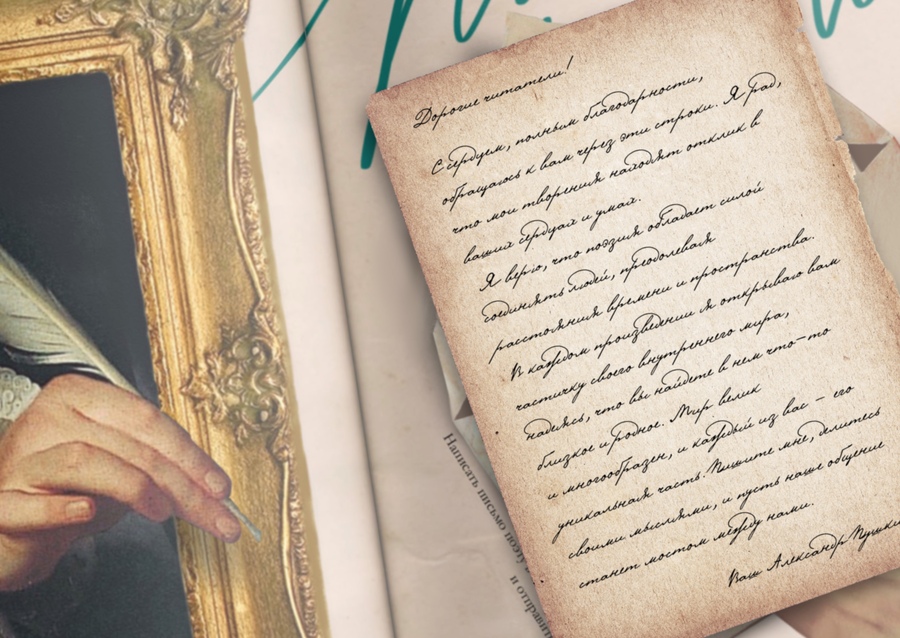 Дорогие читатели!
С сердцем, полным благодарности,
обращаюсь к вам через эти строки. Я рад,
что мои творения находят отклик в
ваших сердцах и умах.
Я верю, что поэзия обладает силой
соединять людей, преодолевая
расстояния времени и пространства.
В каждом произведении я открываю вам
частичку своего внутреннего мира,
надеясь, что вы найдете в нем что-то
близкое и родное. Мир велик
и многообразен, и каждый из вас – его
уникальная часть. Пишите мне, делитесь
своими мыслями, и пусть наше общение
станет мостом между нами.
Ваш Александр Пушкин
Написать письмо поэту
и отправить